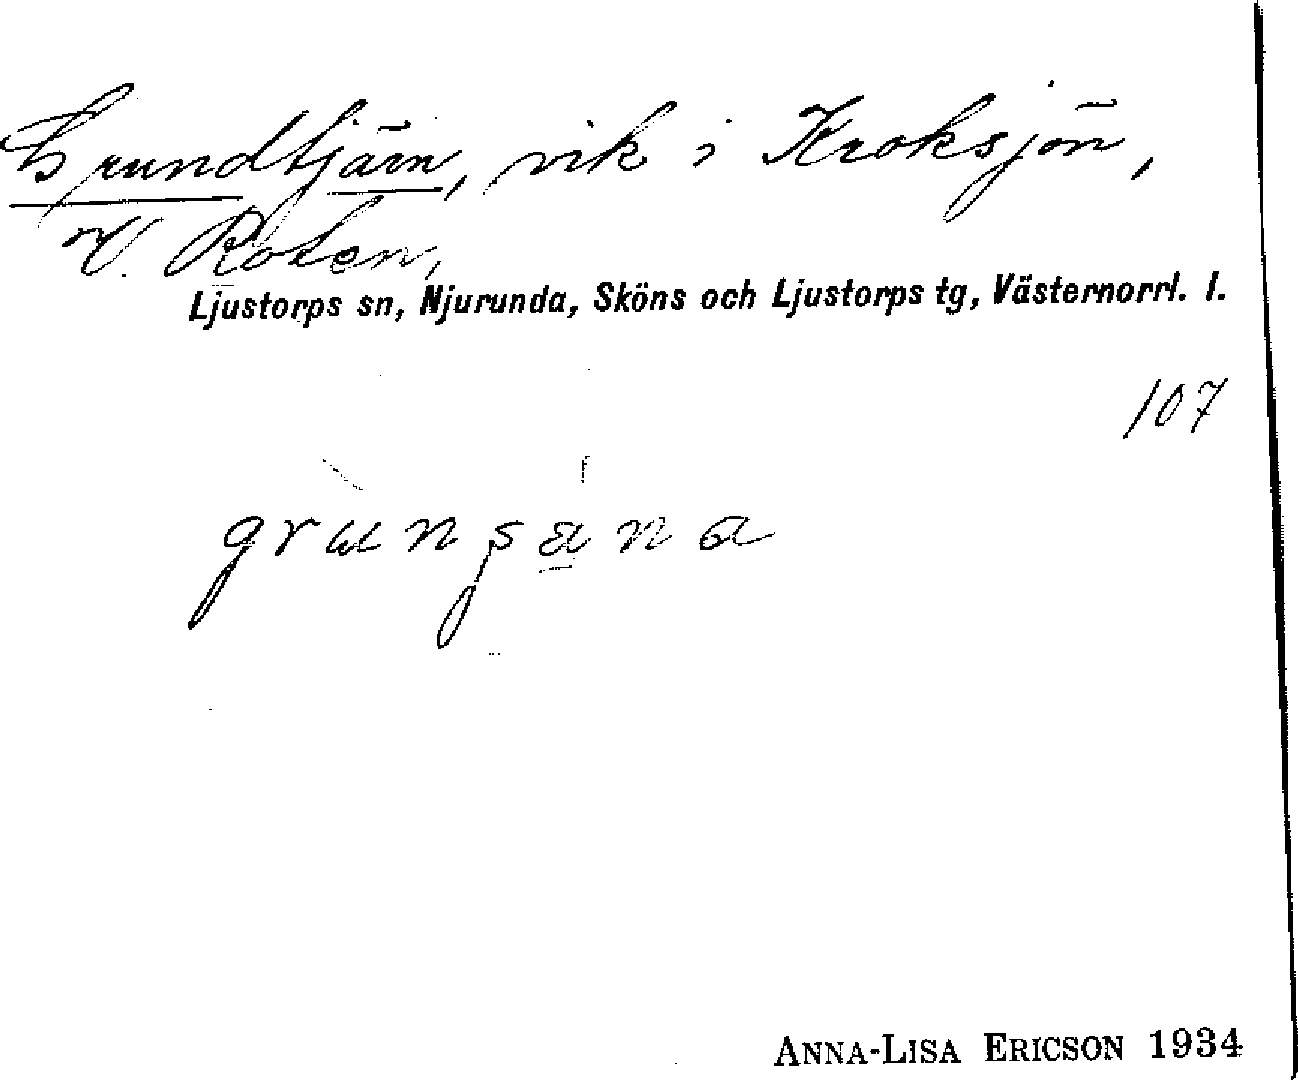 Grundtjärn, vik i Kroksjön,
V. Roten,
Ljustorps sn, Njurunda, Sköns och Ljustorps tg, Västernorrl. l.
107
grunʂäna
ANNA-LISA ERICSON 1934